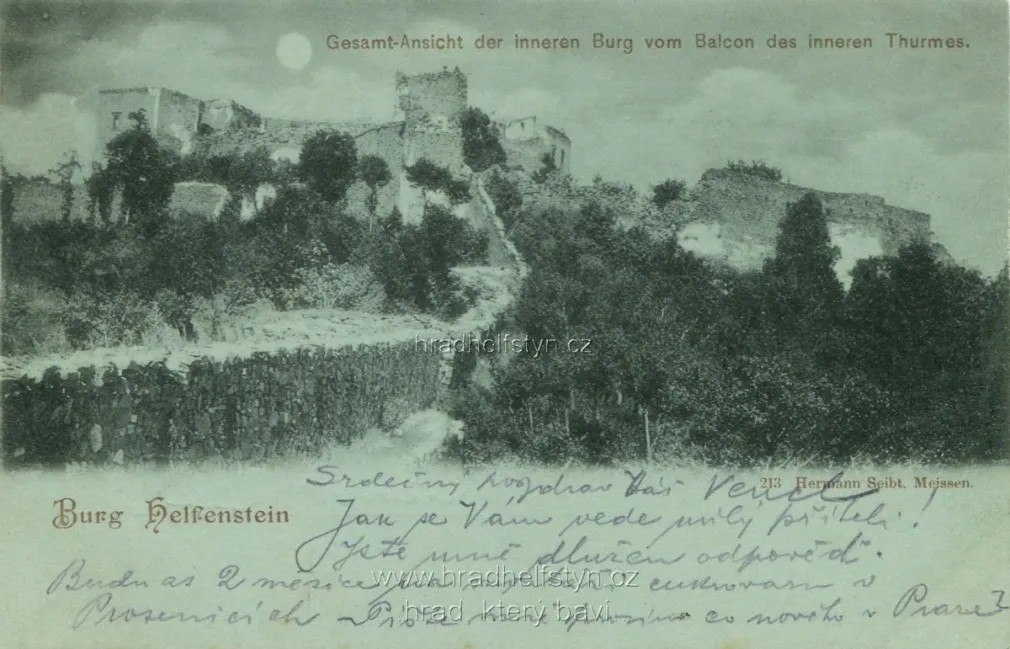 Gesamt-Ansicht der inneren Burg vom Balcon des inneren Thurmes.
hradhelfstyn.cz
213 Hermann Seibt, Meissen.
Burg Helfenstein
Srdečný pozdrav Váš
Jak se Vám vede milý příteli!
Jste mně dlužen odpověď.
Budu as 2 měsíce cukrovaru v
www.hradhelfstyn.cz
Prosenicích – Pište mně prosím co nového v Praze?
hrad, který baví